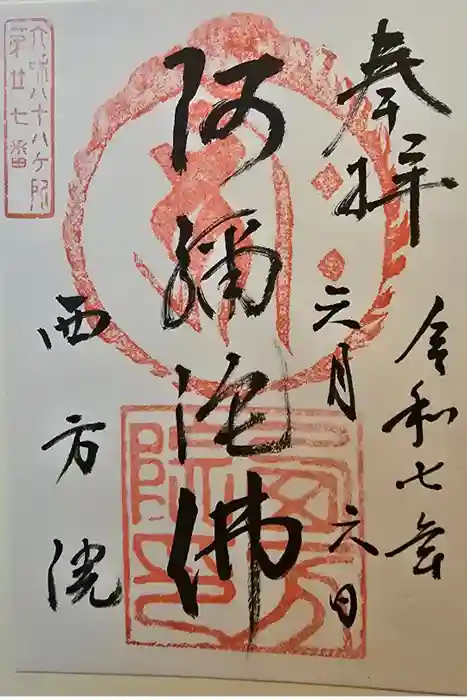 奉拝
令和七年
六月六日
阿彌陀佛
西方院
八十八ケ所
第廿七番
西方
院印